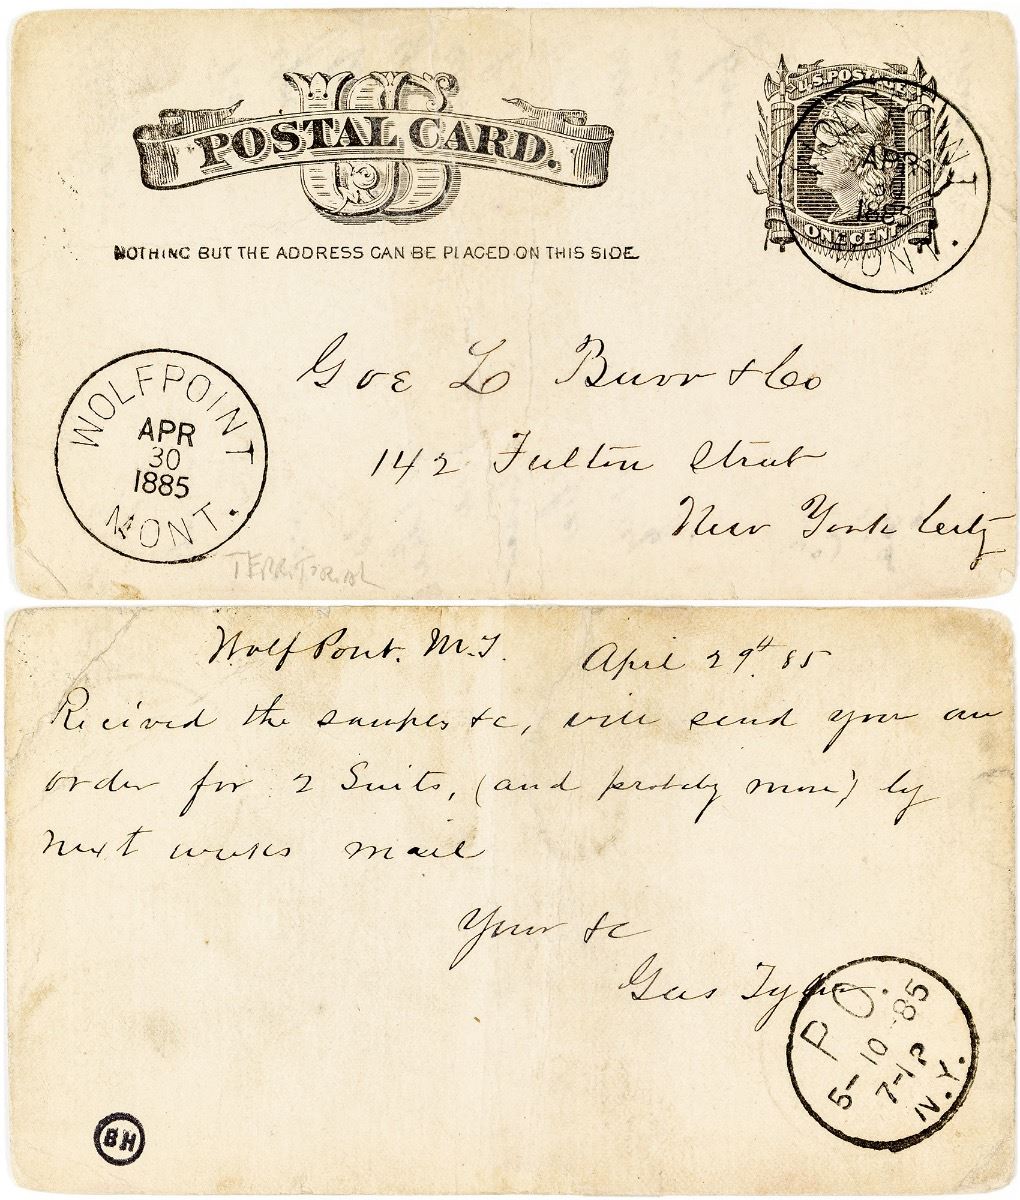 US
POSTAL CARD.
NOTHING BUT THE ADDRESS CAN BE PLACED ON THIS SIDE.
U.S. POSTAGE
ONE CENT
APR
1885
MONT.
Geo L Burr & Co
142 Fulton Street
New York City
WOLFPOINT
APR
30
1885
MONT.
TERRITORIAL
Wolf Point. M.T. April 29th 85
Received the samples &c, will send you an
order for 2 Suits, (and probably more) by
next weeks mail
Your &c
Gus Tyler
P.O.
5-10-85
7-1P
N.Y.
BH